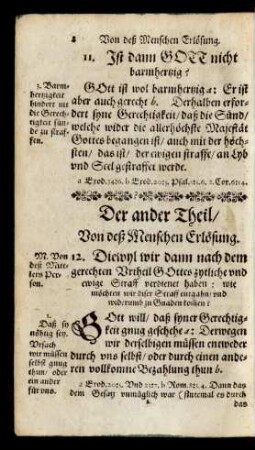 2 Von deß Menschen Erlösung.
11. Ist dann GOTT nicht
barmhertzig?
3. Barm-
hertzigkeit
hindert nit
die Gerech-
tigkeit sün-
de zu straf-
fen.
GOtt ist wol barmhertzig a: Er ist
aber auch gerecht b. Derhalben erfor-
dert syne Gerechtigkeit/ daß die Sünd/
welche wider die allerhöchste Majestät
Gottes begangen ist/ auch mit der höch-
sten/ das ist/ der ewigen straffe/ an Lyb
und Seel gestraffet werde.
Der ander Theil/
Von deß Menschen Erlösung.
M. Von
deß Mitt-
lers Per-
son.
12. Diewyl wir dann nach dem
gerechten Urtheil GOttes zytliche und
ewige Straff verdienet haben: wie
möchten wir diser Straff entgahn/ und
widerumb zu Gnaden kom̃en?
1. Daß sy
nöhtig sey.
Ursach
wir müssen
selbst gnug
thun/ oder
ein ander
für uns.
GOtt will/ daß syner Gerechtig-
keit gnug geschehe a: Derwegen
wir derselbigen müssen entweder
durch uns selbst/ oder durch einen ande-
ren vollkomne Bezahlung thun b.
a Exod. 20:5. Und 23:7. b Rom. 8:3. 4. Dann das
dem Gesatz unmüglich war (sintemal es durch
das